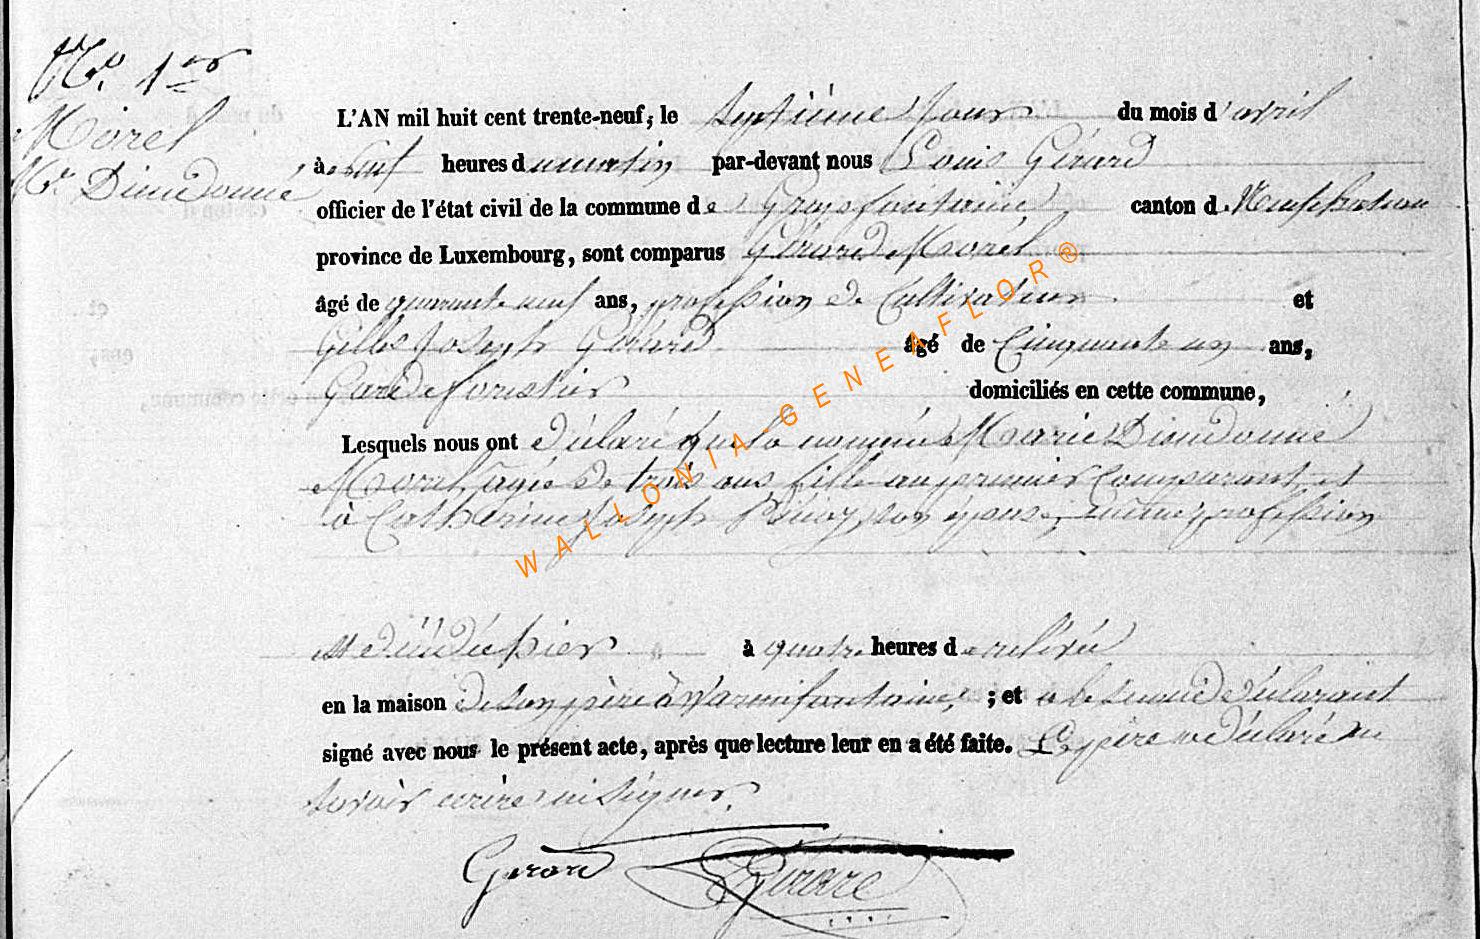 No. 1er
Morel
Mie Dieudonné
L'AN mil huit cent trente-neuf, le septième jour du mois d'avril
à neuf heures du matin par-devant nous Louis Gérard
officier de l'état civil de la commune de Grapfontaine canton d. Neufchateau
province de Luxembourg, sont comparus Gérard Morel
âgé de quarante neuf ans, profession de Cultivateur et
Gilles Joseph Gérard âgé de Cinquante un ans,
Garde forestier domiciliés en cette commune,
Lesquels nous ont déclaré que la nommée Marie Dieudonné
Morel, agée de trois ans fille au premier Comparant et
à Catherine Joseph son épouse, même profession
est décédée hier à quatre heures de relevée
en la maison de son père à Warmifontaine, ; et a le second déclarant
signé avec nous le présent acte, après que lecture leur en a été faite. Le père a déclaré ne
savoir écrire ni signer.
Gerard Gérard
WALLONIA-GENEAFLOR®